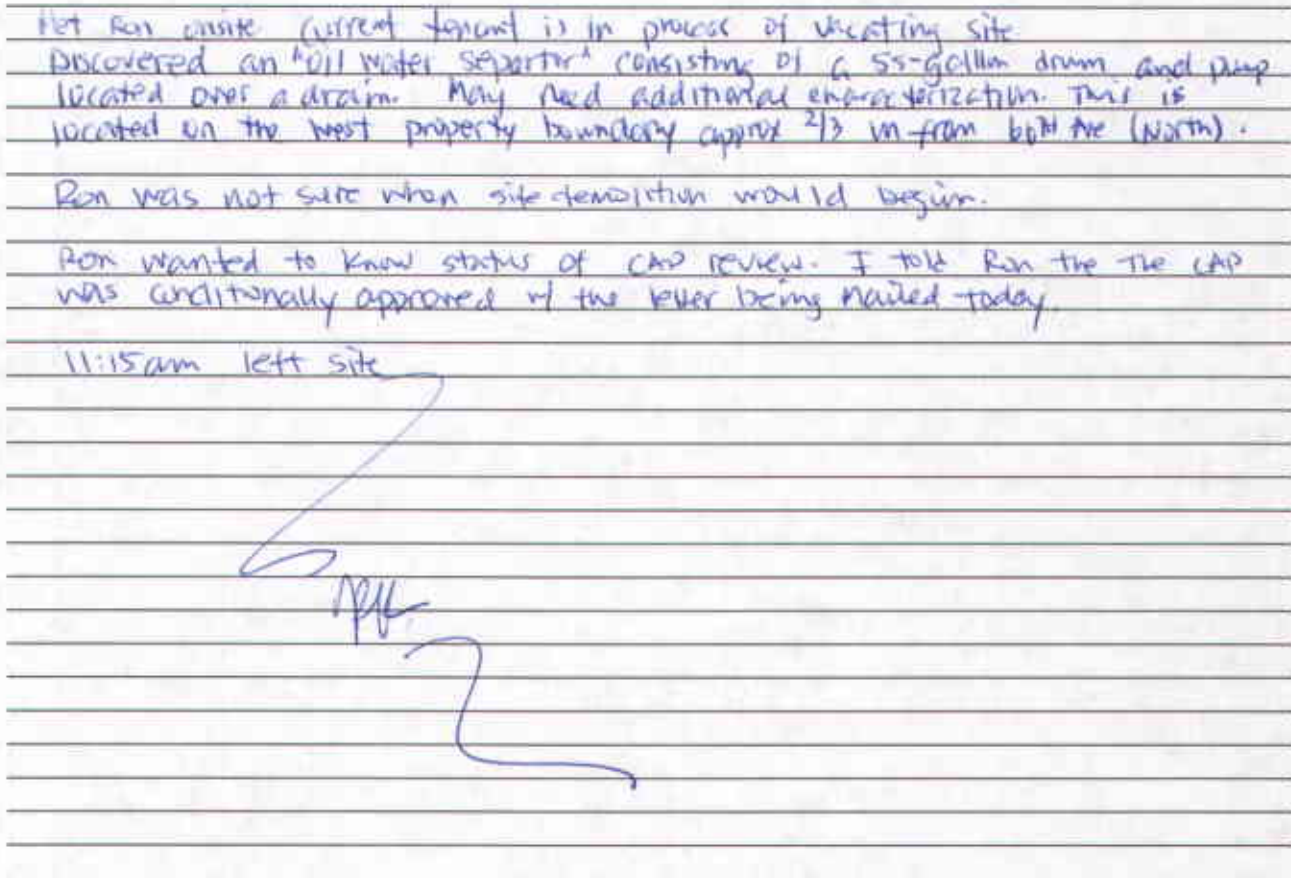 Met Ron onsite current tenant is in process of vacating site
Discovered an "oil water separtor" consisting of a 55-gallon drum and pump
located over a drain. May need additional characterization. This is
located on the west property boundary approx 2/3 in from 60th Ave (North).
Ron was not sure when site demolition would begin.
Ron wanted to know status of CAP review. I told Ron the The CAP
was conditionally approved w/ the letter being mailed today.
11:15am left site